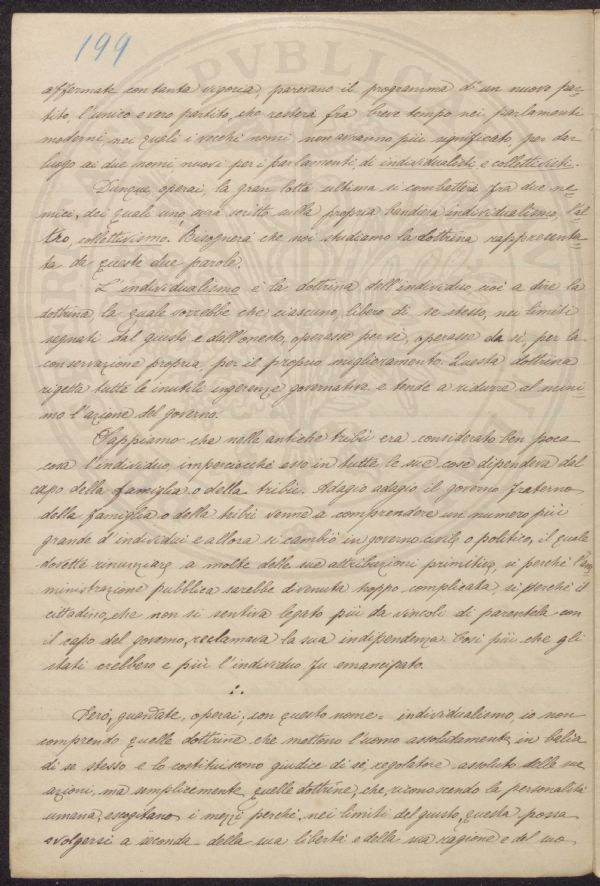 199
affermate con tanta vigoria, parevano il programma d'un nuovo par=
tito, l'unico e vero partito, che resterà fra breve tempo nei parlamenti
moderni, nei quali i vecchi nomi non avranno più significato per dar
luogo ai due nomi nuovi per i parlamenti, di individualisti e collettivisti.
Dunque, operai, la gran lotta ultima si combatterà fra due ne=
mici, dei quali uno, avrà scritto sulla propria bandiera individualismo, l'al=
tro, collettivismo. Bisognerà che noi studiamo la dottrina rappresenta=
ta da queste due parole.
L'individualismo è la dottrina dell'individuo, cioè a dire la
dottrina la quale vorrebbe che ciascuno, libero di se stesso, nei limiti
segnati dal giusto e dall'onesto, operasse per sè, operasse da sè, per la
conservazione propria, per il proprio miglioramento. Questa dottrina
rigetta tutte le inutili ingerenze governative e tende a ridurre al mini=
mo l'azione del governo.
Sappiamo che nelle antiche tribù era considerato ben poca
cosa l'individuo, imperciocchè esso in tutte le sue cose dipendeva dal
capo della famiglia o della tribù. Adagio adagio il governo fraterno
della famiglia o della tribù venne a comprendere un numero più
grande d'individui e allora si cambiò in governo civile o politico, il quale
dovette rinunziare a molte delle sue attribuzioni primitive, sì perchè l'am=
ministrazione pubblica sarebbe divenuta troppo complicata, sì perchè il
cittadino, che non si sentiva legato più da vincoli di parentela con
il capo del governo, reclamava la sua indipendenza. Così più che gli
stati crebbero e più l'individuo fu emancipato.
∴
Però, guardate, operai, con questo nome = individualismo, io non
comprendo quelle dottrine che mettono l'uomo assolutamente in balìa
di se stesso e lo costituiscono giudice di sè, regolatore assoluto delle sue
azioni, ma semplicemente quelle dottrine, che, riconoscendo la personalità
umana, escogitano i mezzi perchè, nei limiti del giusto, questa possa
svolgersi a seconda della sua libertà e della sua ragione e del suo